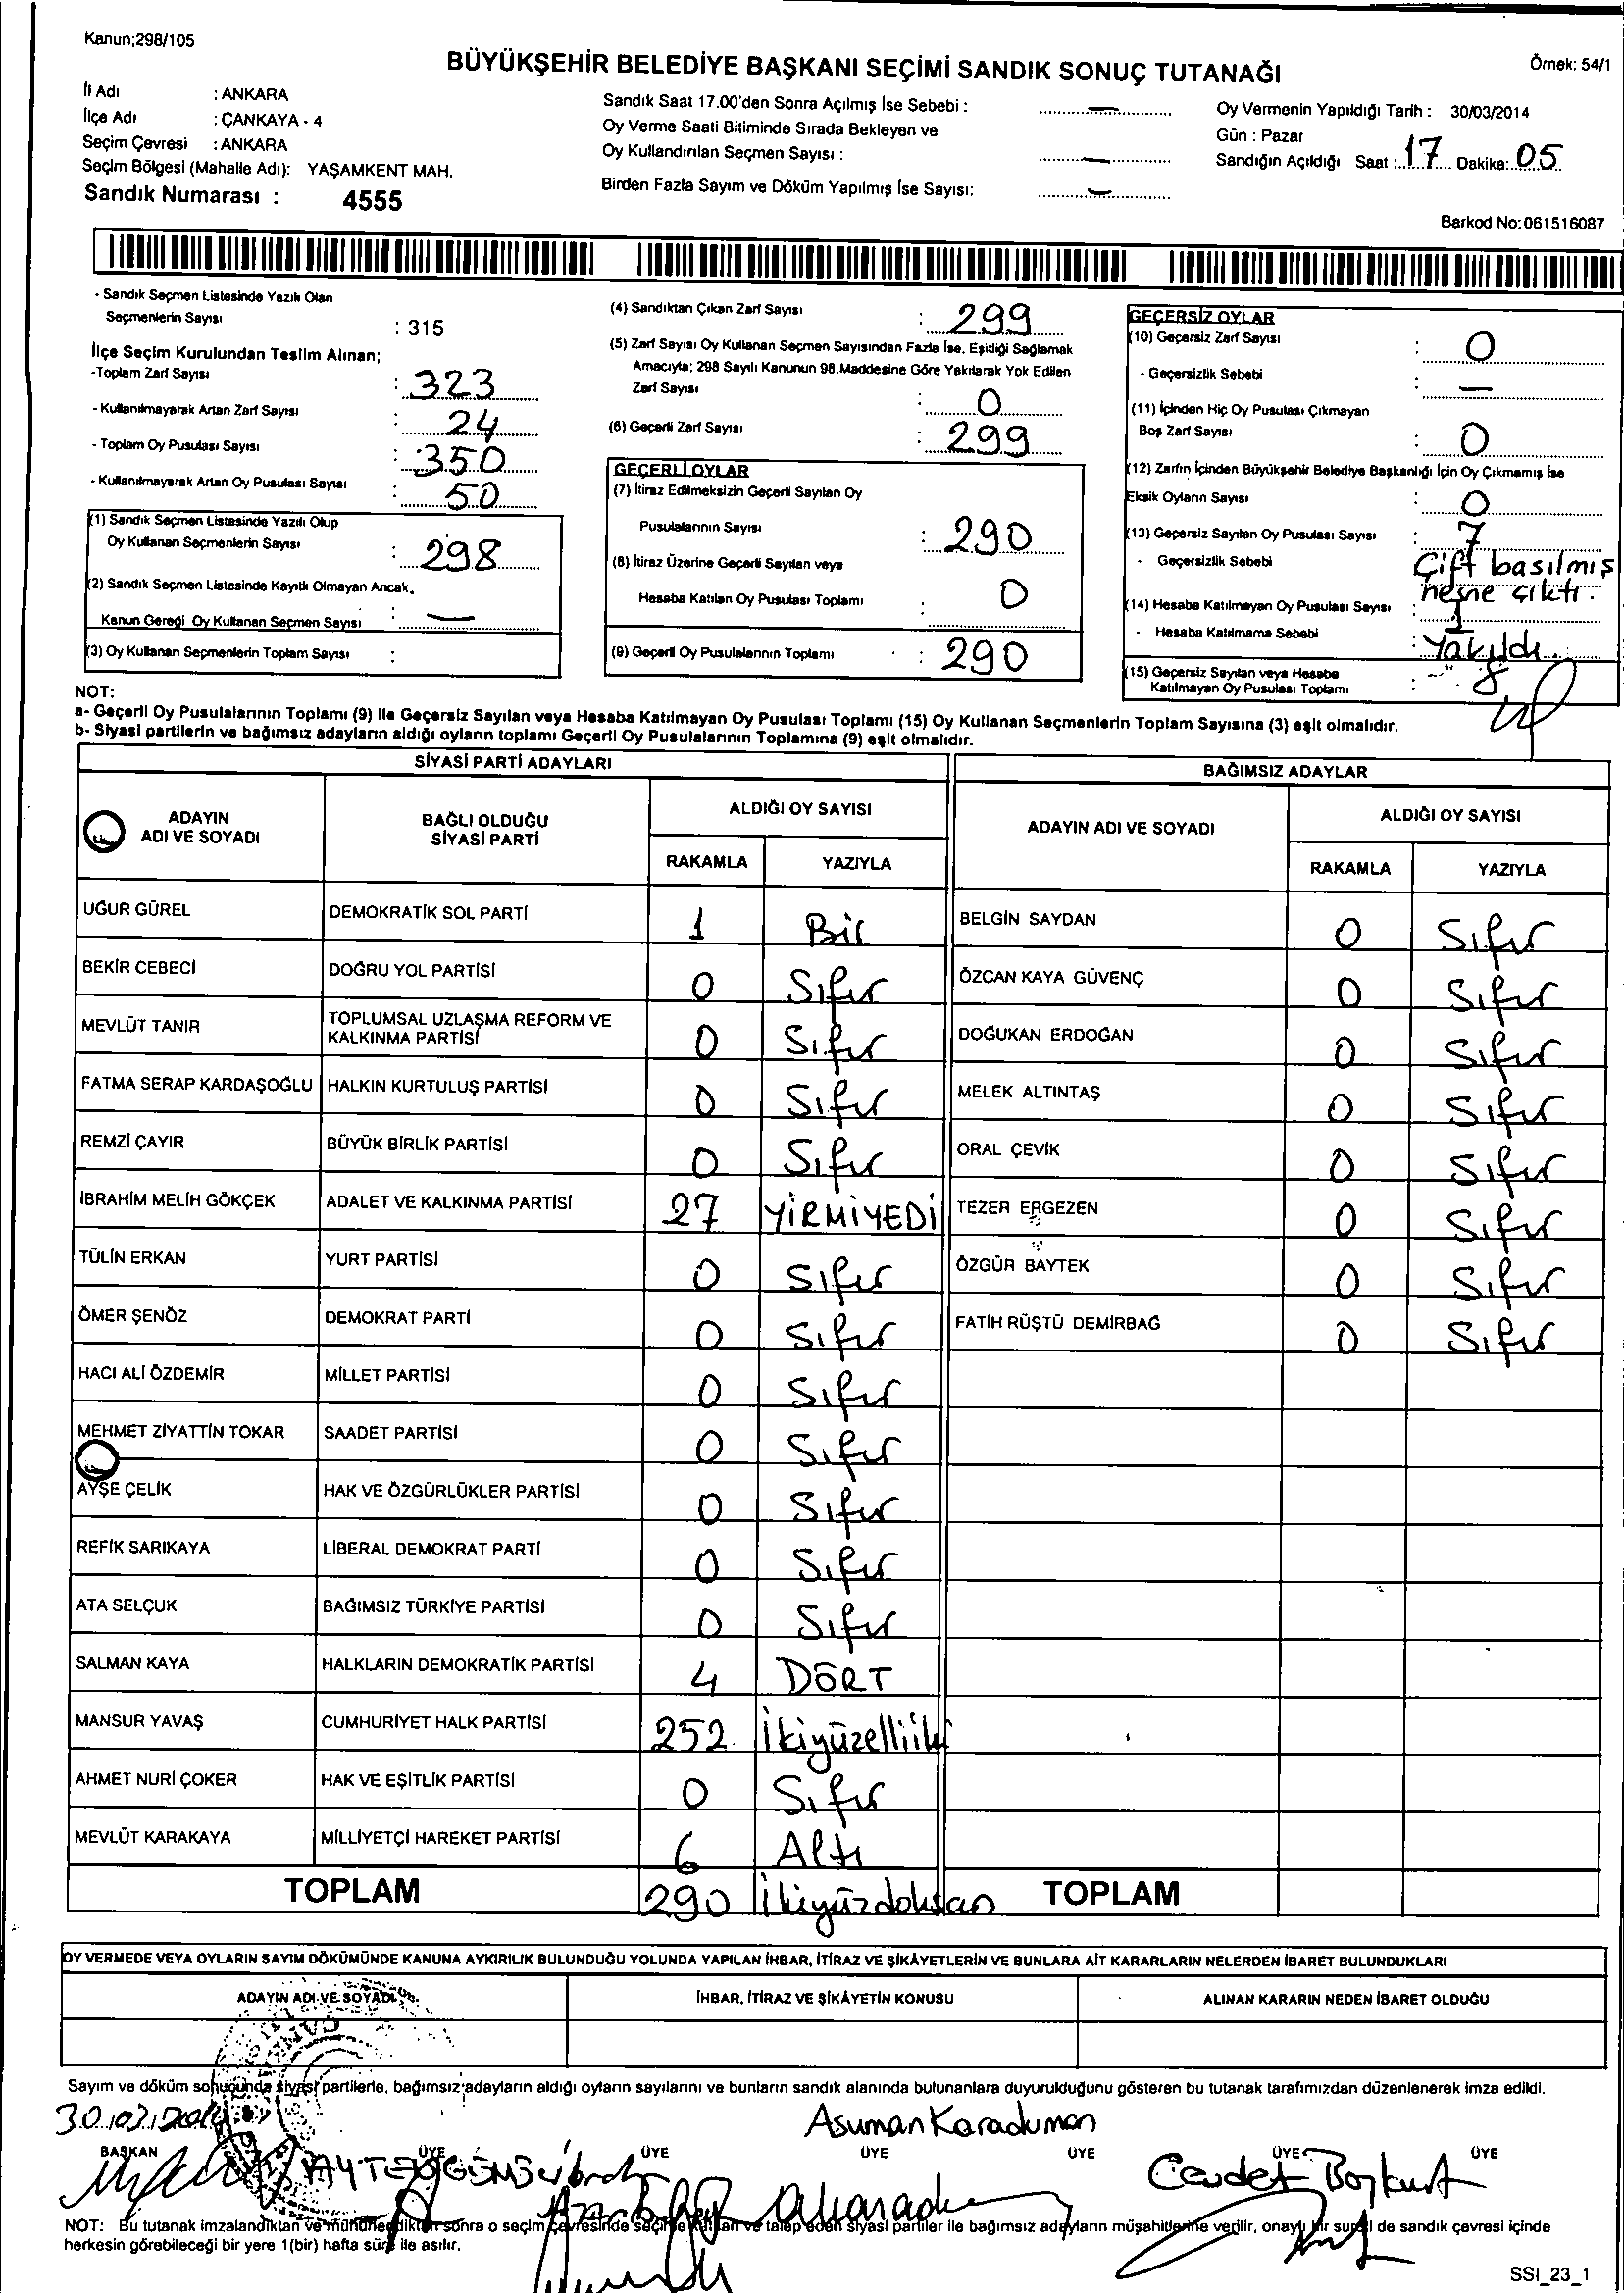 Kanun;298/105
BÜYÜKŞEHİR BELEDİYE BAŞKANI SEÇİMİ SANDIK SONUÇ TUTANAĞI
Örnek: 54/1
İl Adı : ANKARA
İlçe Adı : ÇANKAYA - 4
Seçim Çevresi : ANKARA
Seçim Bölgesi (Mahalle Adı): YAŞAMKENT MAH.
Sandık Numarası : 4555
Sandık Saat 17.00'den Sonra Açılmış İse Sebebi : —
Oy Verme Saati Bitiminde Sırada Bekleyen ve
Oy Kullandırılan Seçmen Sayısı : —
Birden Fazla Sayım ve Döküm Yapılmış İse Sayısı: —
Oy Vermenin Yapıldığı Tarih : 30/03/2014
Gün : Pazar
Sandığın Açıldığı Saat : 17 Dakika: 05
Barkod No:061516087
- Sandık Seçmen Listesinde Yazılı Olan
Seçmenlerin Sayısı : 315
İlçe Seçim Kurulundan Teslim Alınan;
-Toplam Zarf Sayısı : 323
- Kullanılmayarak Artan Zarf Sayısı : 24
- Toplam Oy Pusulası Sayısı : 350
- Kullanılmayarak Artan Oy Pusulası Sayısı : 50
(1) Sandık Seçmen Listesinde Yazılı Olup
Oy Kullanan Seçmenlerin Sayısı : 298
(2) Sandık Seçmen Listesinde Kayıtlı Olmayan Ancak,
Kanun Gereği Oy Kullanan Seçmen Sayısı : —
(3) Oy Kullanan Seçmenlerin Toplam Sayısı :
(4) Sandıktan Çıkan Zarf Sayısı : 299
(5) Zarf Sayısı Oy Kullanan Seçmen Sayısından Fazla İse, Eşitliği Sağlamak
Amacıyla; 298 Sayılı Kanunun 98.Maddesine Göre Yakılarak Yok Edilen
Zarf Sayısı : 0
(6) Geçerli Zarf Sayısı : 299
GEÇERLİ OYLAR
(7) İtiraz Edilmeksizin Geçerli Sayılan Oy
Pusulalarının Sayısı : 290
(8) İtiraz Üzerine Geçerli Sayılan veya
Hesaba Katılan Oy Pusulası Toplamı : 0
(9) Geçerli Oy Pusulalarının Toplamı : 290
GEÇERSİZ OYLAR
(10) Geçersiz Zarf Sayısı : 0
- Geçersizlik Sebebi : —
(11) İçinden Hiç Oy Pusulası Çıkmayan
Boş Zarf Sayısı : 0
(12) Zarfın İçinden Büyükşehir Belediye Başkanlığı İçin Oy Çıkmamış İse
Eksik Oyların Sayısı : 0
(13) Geçersiz Sayılan Oy Pusulası Sayısı : 7
- Geçersizlik Sebebi : Çift basılmış
nesne çıktı.
(14) Hesaba Katılmayan Oy Pusulası Sayısı : 1
- Hesaba Katılmama Sebebi : Yakıldı.
(15) Geçersiz Sayılan veya Hesaba
Katılmayan Oy Pusulası Toplamı : 8
NOT:
a- Geçerli Oy Pusulalarının Toplamı (9) ile Geçersiz Sayılan veya Hesaba Katılmayan Oy Pusulası Toplamı (15) Oy Kullanan Seçmenlerin Toplam Sayısına (3) eşit olmalıdır.
b- Siyasi partilerin ve bağımsız adayların aldığı oyların toplamı Geçerli Oy Pusulalarının Toplamına (9) eşit olmalıdır.
SİYASİ PARTİ ADAYLARI
BAĞIMSIZ ADAYLAR
ADAYIN ADI VE SOYADI BAĞLI OLDUĞU SİYASİ PARTİ ALDIĞI OY SAYISI RAKAMLA YAZIYLA
ADAYIN ADI VE SOYADI ALDIĞI OY SAYISI RAKAMLA YAZIYLA
UĞUR GÜREL DEMOKRATİK SOL PARTİ 1 Bir BELGİN SAYDAN 0 Sıfır
BEKİR CEBECİ DOĞRU YOL PARTİSİ 0 Sıfır ÖZCAN KAYA GÜVENÇ 0 Sıfır
MEVLÜT TANIR TOPLUMSAL UZLAŞMA REFORM VE KALKINMA PARTİSİ 0 Sıfır DOĞUKAN ERDOĞAN 0 Sıfır
FATMA SERAP KARDAŞOĞLU HALKIN KURTULUŞ PARTİSİ 0 Sıfır MELEK ALTINTAŞ 0 Sıfır
REMZİ ÇAYIR BÜYÜK BİRLİK PARTİSİ 0 Sıfır ORAL ÇEVİK 0 Sıfır
İBRAHİM MELİH GÖKÇEK ADALET VE KALKINMA PARTİSİ 27 YİRMİYEDİ TEZER ERGEZEN 0 Sıfır
TÜLİN ERKAN YURT PARTİSİ 0 Sıfır ÖZGÜR BAYTEK 0 Sıfır
ÖMER ŞENÖZ DEMOKRAT PARTİ 0 Sıfır FATİH RÜŞTÜ DEMİRBAĞ 0 Sıfır
HACI ALİ ÖZDEMİR MİLLET PARTİSİ 0 Sıfır
MEHMET ZİYATTİN TOKAR SAADET PARTİSİ 0 Sıfır
AYŞE ÇELİK HAK VE ÖZGÜRLÜKLER PARTİSİ 0 Sıfır
REFİK SARIKAYA LİBERAL DEMOKRAT PARTİ 0 Sıfır
ATA SELÇUK BAĞIMSIZ TÜRKİYE PARTİSİ 0 Sıfır
SALMAN KAYA HALKLARIN DEMOKRATİK PARTİSİ 4 DÖRT
MANSUR YAVAŞ CUMHURİYET HALK PARTİSİ 252 İkiyüzelliiki
AHMET NURİ ÇOKER HAK VE EŞİTLİK PARTİSİ 0 Sıfır
MEVLÜT KARAKAYA MİLLİYETÇİ HAREKET PARTİSİ 6 Altı
TOPLAM 290 İkiyüzdoksan TOPLAM
OY VERMEDE VEYA OYLARIN SAYIM DÖKÜMÜNDE KANUNA AYKIRILIK BULUNDUĞU YOLUNDA YAPILAN İHBAR, İTİRAZ VE ŞİKÂYETLERİN VE BUNLARA AİT KARARLARIN NELERDEN İBARET BULUNDUKLARI
ADAYIN ADI VE SOYADI İHBAR, İTİRAZ VE ŞİKÂYETİN KONUSU ALINAN KARARIN NEDEN İBARET OLDUĞU
Sayım ve döküm sonucunda siyasi partilerle, bağımsız adayların aldığı oyların sayılarını ve bunların sandık alanında bulunanlara duyurulduğunu gösteren bu tutanak tarafımızdan düzenlenerek imza edildi.
30.03.2014
Asuman Karaduman
BAŞKAN ÜYE ÜYE ÜYE ÜYE ÜYE ÜYE
Cevdet Bozkurt
NOT: Bu tutanak imzalandıktan ve mühürlendikten sonra o seçim çevresinde seçime katılan ve talep eden siyasi partiler ile bağımsız adayların müşahitlerine verilir, onaylı bir sureti de sandık çevresi içinde
herkesin görebileceği bir yere 1(bir) hafta süre ile asılır.
SSI_23_1